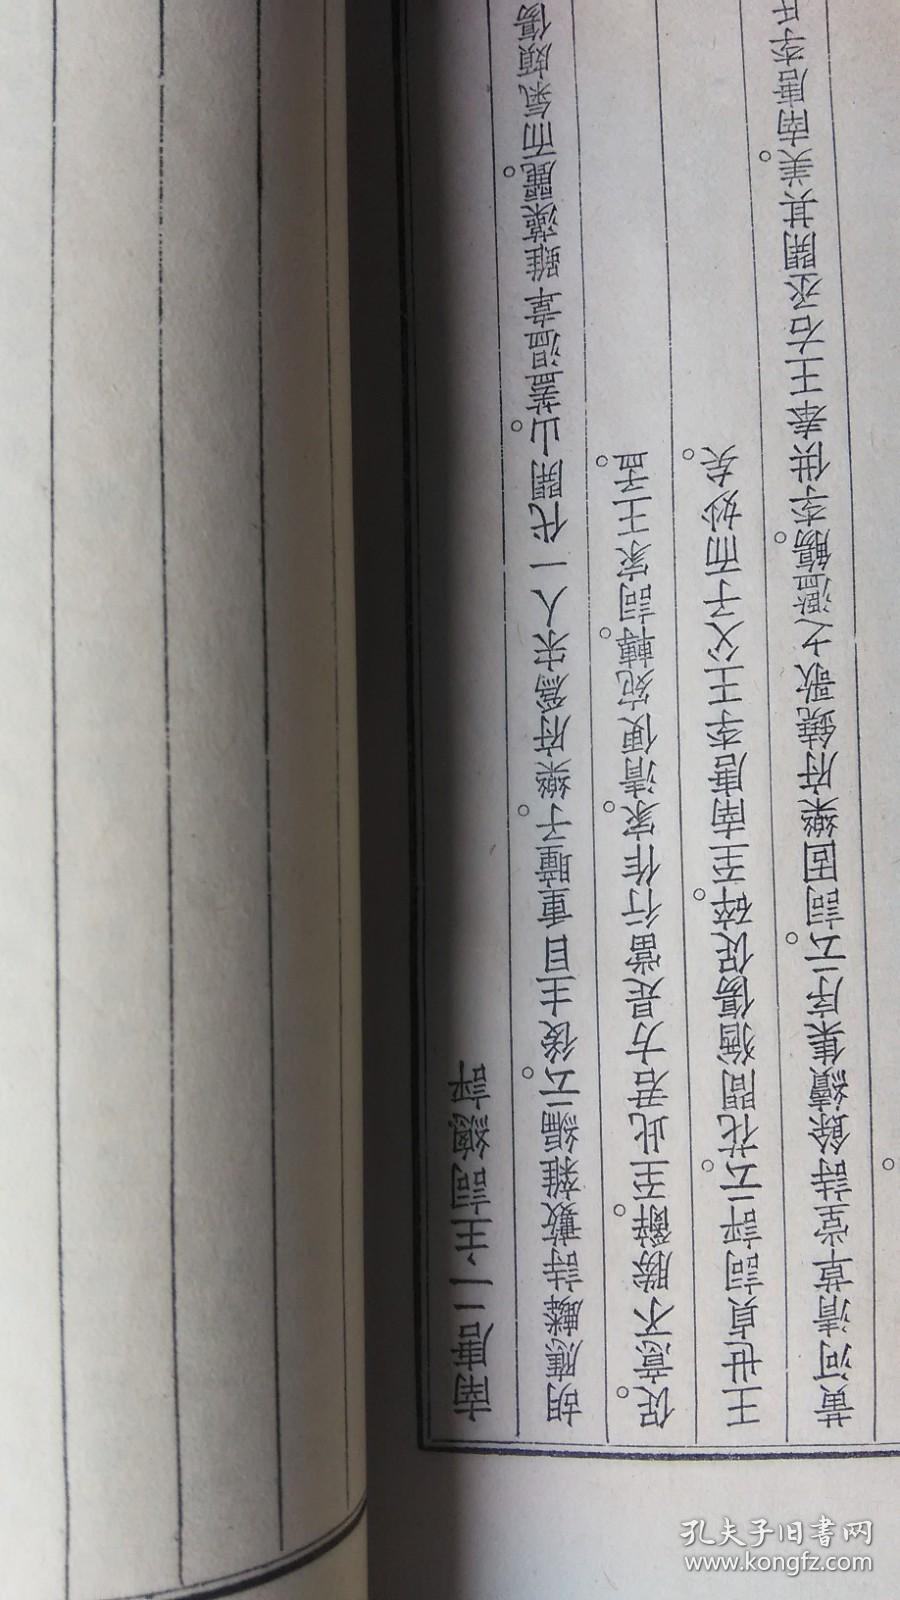 南唐二主詞總評
胡應麟詩數雜編云。後主目重瞳子。樂府爲宋人一代開山。蓋温韋雖藻麗。而氣頗傷
促。意不勝辭。至此君方是當行作家。清便宛轉。詞家王孟。
王世貞詞評云。花間猶傷促碎。至南唐李王父子而妙矣。
黃河清草堂詩餘續集序云。詞固樂府鐃歌之濫觴。李供奉王右丞開其美。南唐李氏
孔夫子旧书网
www.kongfz.com